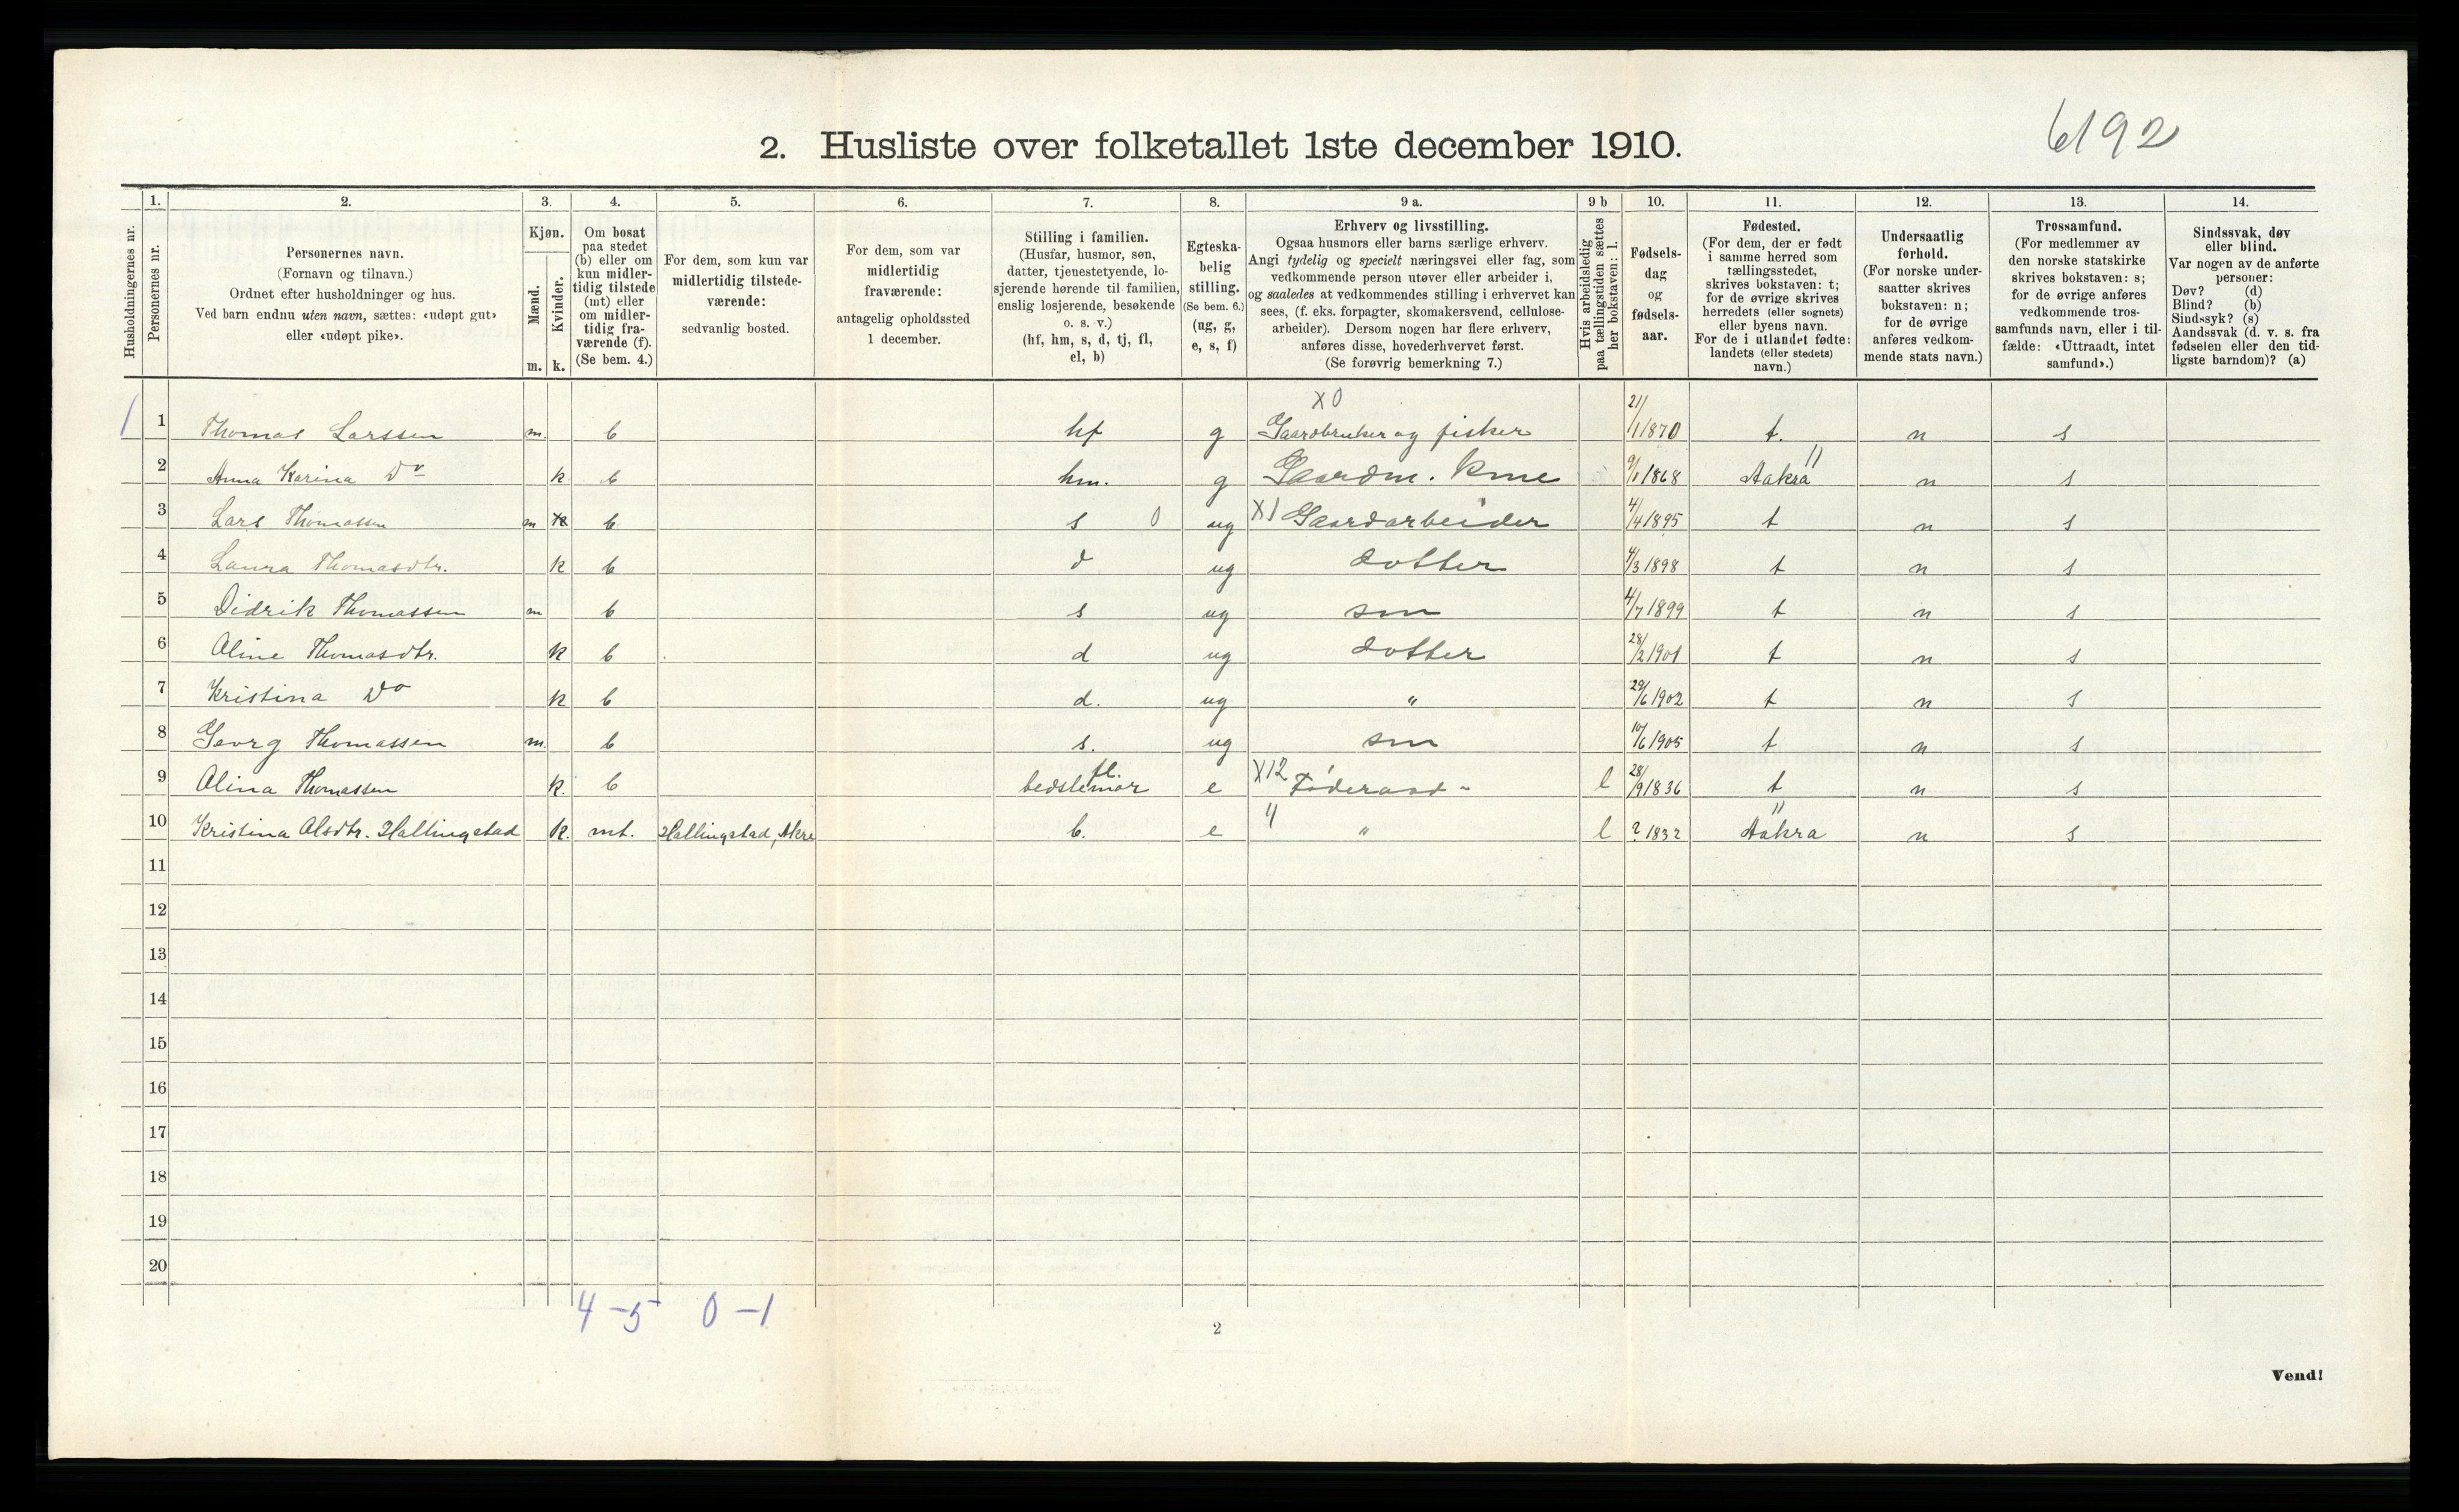 6192
2. Husliste over folketallet 1ste december 1910.
Husholdningernes nr.
1. Personernes nr.
2. Personernes navn. (Fornavn og tilnavn.) Ordnet efter husholdninger og hus. Ved barn endnu uten navn, sættes: «udøpt gut» eller «udøpt pike».
3. Kjøn. Mænd. m. Kvinder. k.
4. Om bosat paa stedet (b) eller om kun midlertidig tilstede (mt) eller om midlertidig fraværende (f). (Se bem. 4.)
5. For dem, som kun var midlertidig tilstedeværende: sedvanlig bosted.
6. For dem, som var midlertidig fraværende: antagelig opholdssted 1 december.
7. Stilling i familien. (Husfar, husmor, søn, datter, tjenestetyende, losjerende hørende til familien, enslig losjerende, besøkende o. s. v.) (hf, hm, s, d, tj, fl, el, b)
8. Egteskabelig stilling. (Se bem. 6.) (ug, g, e, s, f)
9 a. Erhverv og livsstilling. Ogsaa husmors eller barns særlige erhverv. Angi tydelig og specielt næringsvei eller fag, som vedkommende person utøver eller arbeider i, og saaledes at vedkommendes stilling i erhvervet kan sees, (f. eks. forpagter, skomakersvend, cellulosearbeider). Dersom nogen har flere erhverv, anføres disse, hovederhvervet først. (Se forøvrig bemerkning 7.)
9 b Hvis arbeidsledig paa tællingstiden sættes her bokstaven: l.
10. Fødselsdag og fødselsaar.
11. Fødested. (For dem, der er født i samme herred som tællingsstedet, skrives bokstaven: t; for de øvrige skrives herredets (eller sognets) eller byens navn. For de i utlandet fødte: landets (eller stedets) navn.)
12. Undersaatlig forhold. (For norske undersaatter skrives bokstaven: n; for de øvrige anføres vedkommende stats navn.)
13. Trossamfund. (For medlemmer av den norske statskirke skrives bokstaven: s; for de øvrige anføres vedkommende trossamfunds navn, eller i tilfælde: «Uttraadt, intet samfund».)
14. Sindssvak, døv eller blind. Var nogen av de anførte personer: Døv? (d) Blind? (b) Sindssyk? (s) Aandssvak (d. v. s. fra fødselen eller den tidligste barndom)? (a)
1 1 Thomas Larssen m. b hf g X0 Gaardbruker og fisker 21/1 1870 t. n s
2 Anna Karina Do k b hm. g Gaardm. kone 9/1 1868 Aakra 11 n s
3 Lars Thomassen m k b s 0 ug X1 Gaardarbeider 4/4 1895 t n s
4 Laura Thomasdtr. k b d ug dotter 4/3 1898 t n s
5 Didrik Thomassen m b s ug søn 4/7 1899 t n s
6 Aline Thomasdtr. k b d ug dotter 28/2 1901 t n s
7 Kristina Do k b d. ug " 29/6 1902 t n s
8 Georg Thomassen m. b s. ug søn 10/6 1905 t n s
9 Alina Thomassen k. b bedstemor fl. e X12 Føderaad - l 28/9 1836 t n s
10 Kristina Olsdtr. Hallingstad k. mt. Hallingstad, Akre b. e " " l ? 1832 Aakra " n s
11
12
13
14
15
16
17
18
19
20
4 - 5 0 - 1
2
Vend!